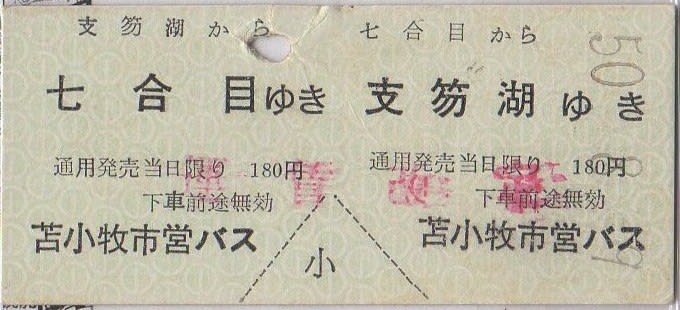 支笏湖から
七合目ゆき
通用発売当日限り 180円
下車前途無効
苫小牧市営バス
小
七合目から
支笏湖ゆき
通用発売当日限り 180円
下車前途無効
苫小牧市営バス
50